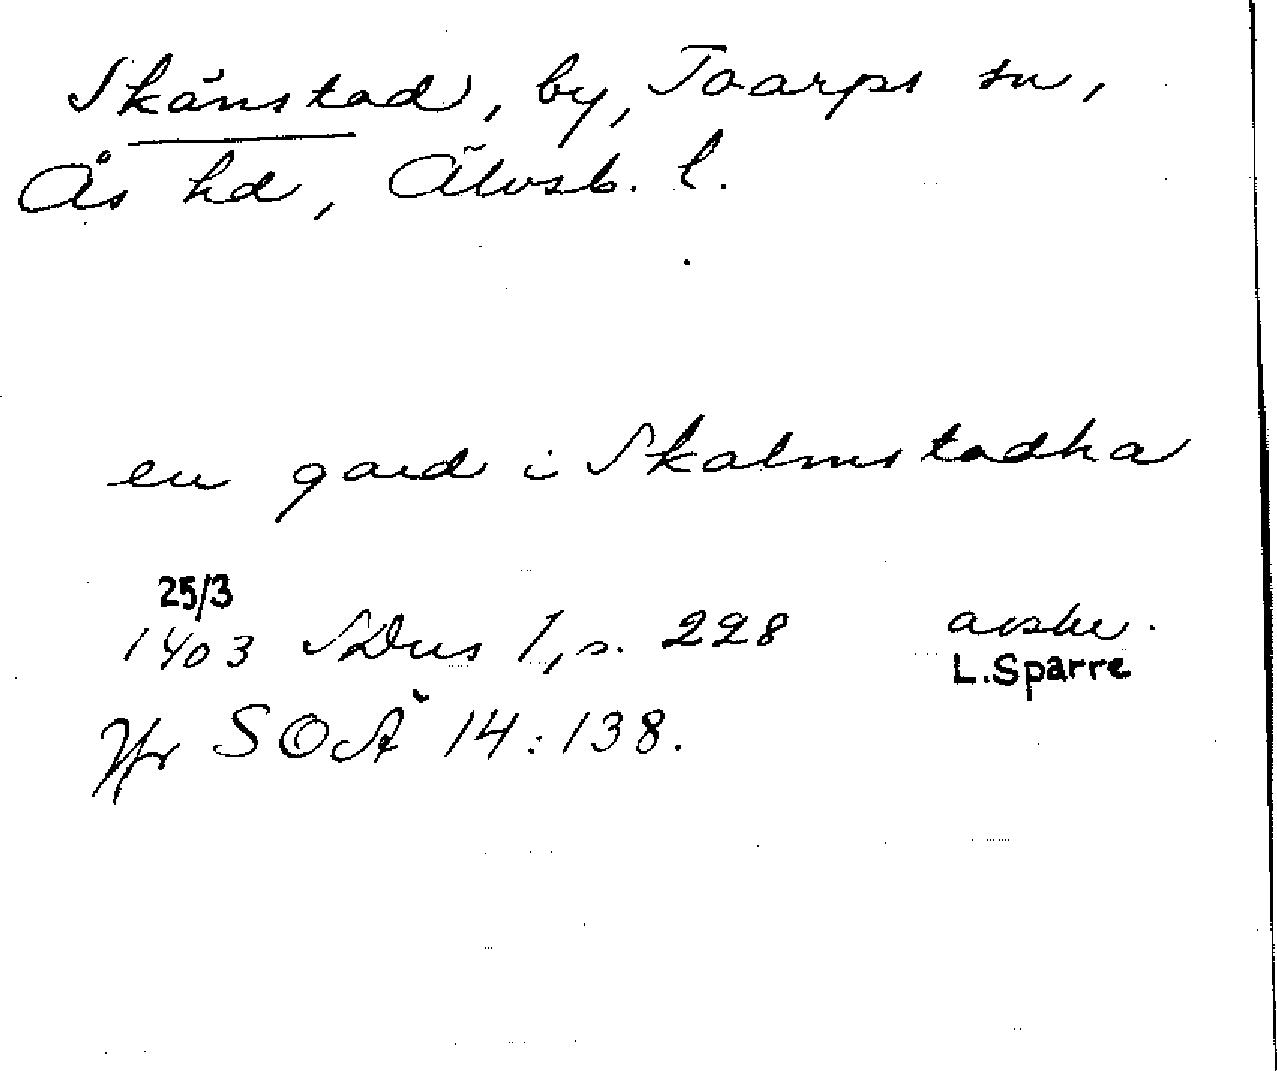 Skånstad, by, Toarps sn,
Ås hd, Älvsb. l.
en gard i Skalmstadha
25/3
1403 SDns 1, s. 228 avskr.
L. Sparre
Jfr SOÄ 14:138.